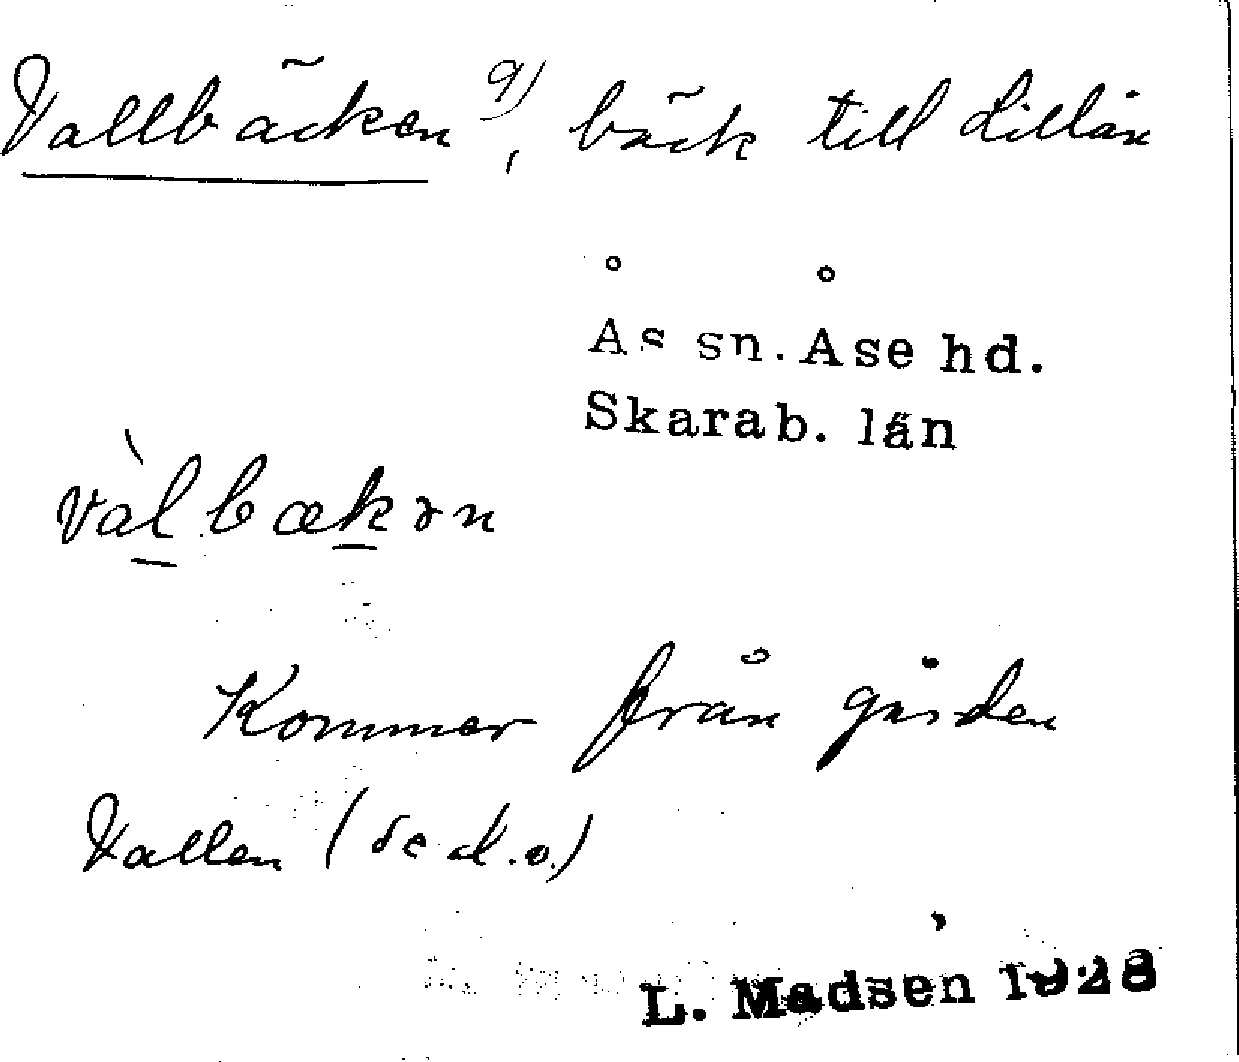 Vallbäcken 9), bäck till Lillån
Ås sn. Åse hd.
Skarab. län
vàlbækən
Kommer från gården
Vallen (se d.o.)
L. Madsen 1928